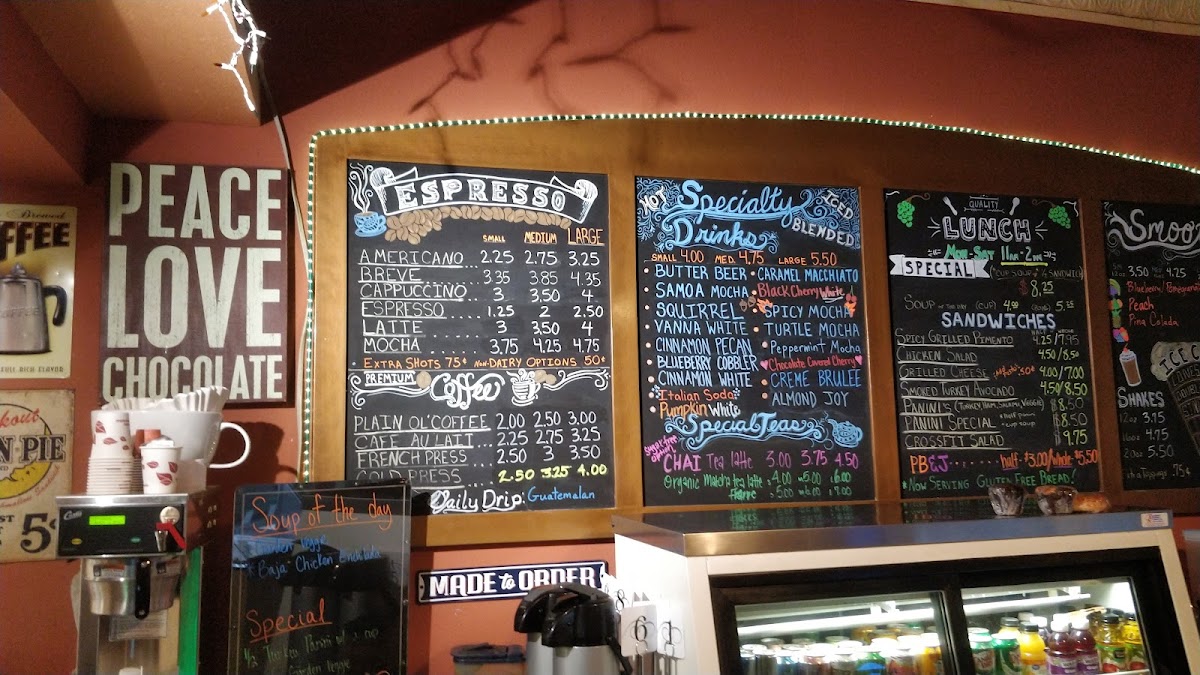 Brewed
FFEE
COFFEE
RICH FLAVOR
N PIE
5¢
PEACE
LOVE
CHOCOLATE
ESPRESSO
SMALL MEDIUM LARGE
AMERICANO 2.25 2.75 3.25
BREVE 3.35 3.85 4.35
CAPPUCCINO 3 3.50 4
ESPRESSO 1.25 2 2.50
LATTE 3 3.50 4
MOCHA 3.75 4.25 4.75
EXTRA SHOTS 75¢ NON-DAIRY OPTIONS 50¢
PREMIUM Coffee
PLAIN OL' COFFEE 2.00 2.50 3.00
CAFE AU LAIT 2.25 2.75 3.25
FRENCH PRESS 2.50 3 3.50
COLD PRESS 2.50 3.25 4.00
Daily Drip: Guatemalan
HOT Specialty Drinks ICED BLENDED
SMALL 4.00 MED. 4.75 LARGE 5.50
• BUTTER BEER
• SAMOA MOCHA
• SQUIRREL
• VANNA WHITE
• CINNAMON PECAN
• BLUEBERRY COBBLER
• CINNAMON WHITE
• Italian Soda
• Pumpkin White
• CARAMEL MACCHIATO
• Black Cherry White
• SPICY MOCHA
• TURTLE MOCHA
• Peppermint Mocha
Chocolate Covered Cherry
• CREME BRULEE
• ALMOND JOY
Special Teas
sugar free option
CHAI Tea latte 3.00 3.75 4.50
Organic Matcha tea latte 4.00 5.00 6.00
5.00 6.00 7.00
QUALITY
LUNCH
MON-SAT 11AM-2PM
SPECIAL "CUP SOUP & ½ SANDWICH
$8.25
SOUP OF THE DAY (CUP) 4.00 (BOWL) 5.25
SANDWICHES
HALF WHOLE
SPICY GRILLED PIMENTO 4.25/7.95
CHICKEN SALAD 4.50/8.50
GRILLED CHEESE 4.00/7.00
SMOKED TURKEY AVOCADO 4.50/8.50
PANINI'S (TURKEY, HAM, SALAMI, VEGGIE) $8.50
PANINI SPECIAL $8.50
CROSSFIT SALAD 9.75
PB&J half-$3.00/Whole-$5.50
*NOW SERVING GLUTEN FREE BREAD!
Smoo
12oz 3.50 4.25
Blueberry/Pomegranate
Peach
Pina Colada
ICE C
SHAKES
12oz 3.75
16oz 4.75
20oz 5.50
75¢
Soup of the day
Garden Veggie
* Baja Chicken Enchilada
Special
½ Turkey Panini w/ a cup
Garden Veggie
Curtis
MADE to ORDER
8
6
1